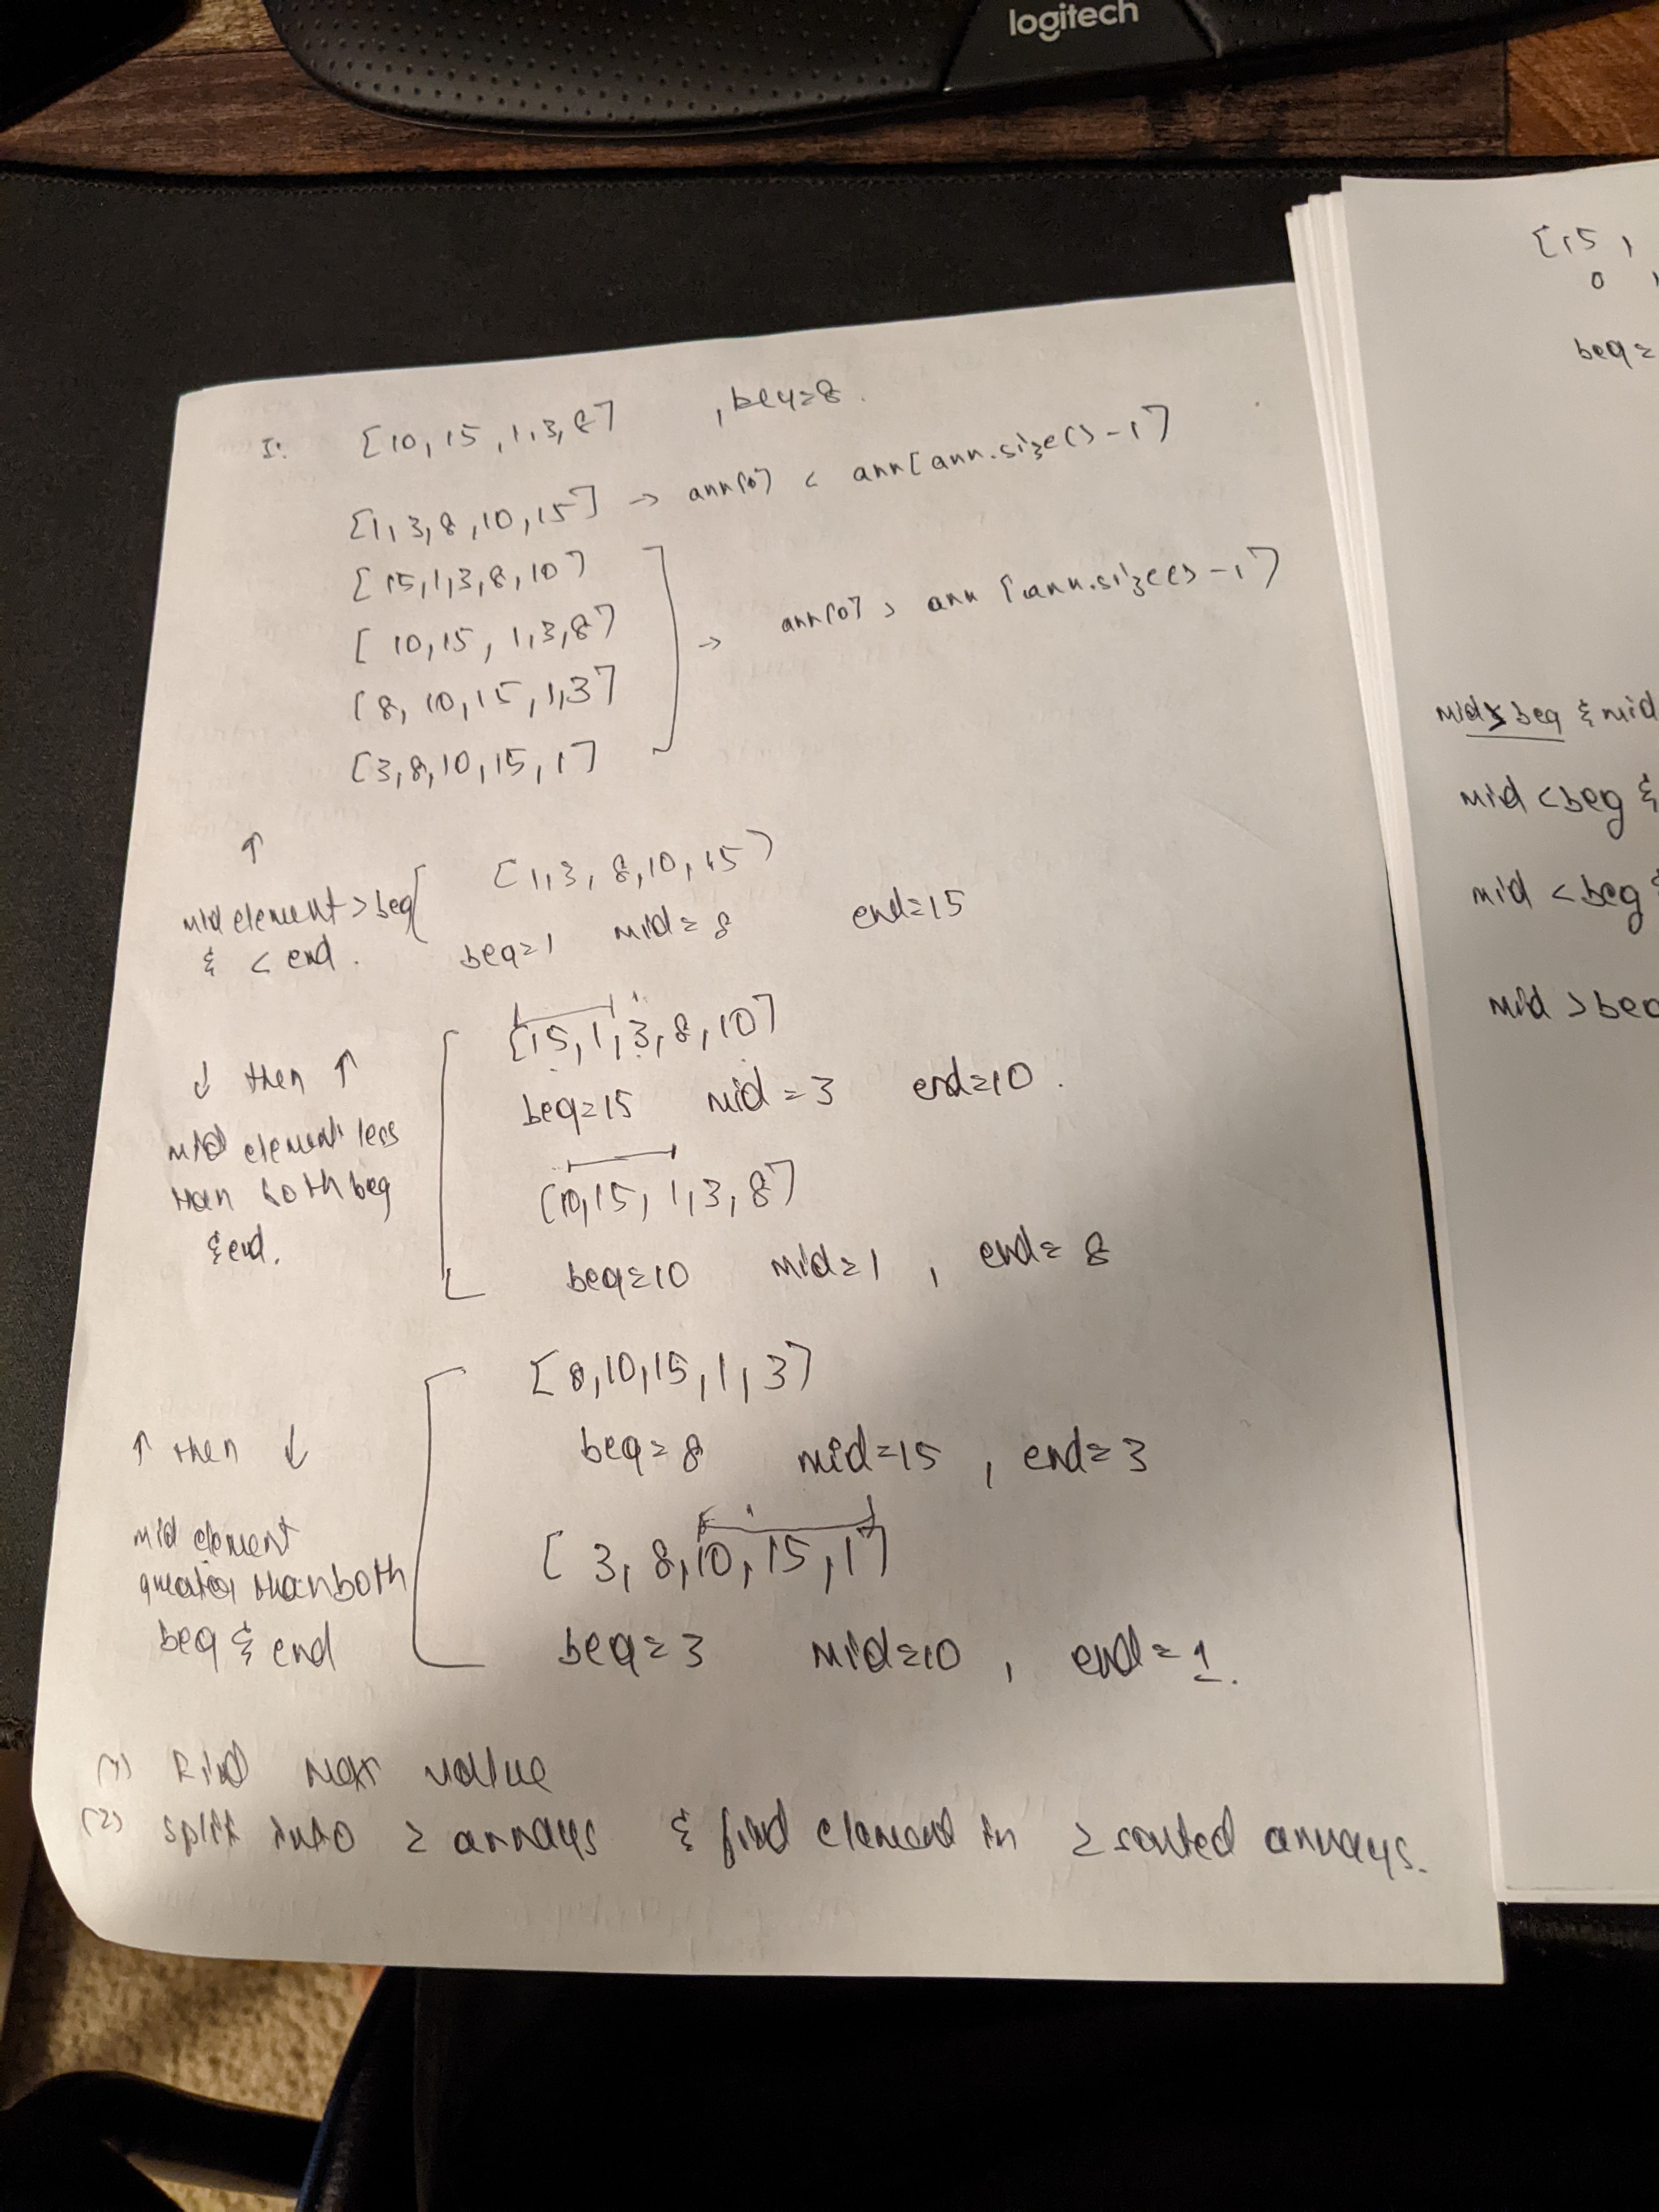 logitech
I: [10, 15, 1, 3, 8] , key=8.
[1, 3, 8, 10, 15] → arr[0] < arr[arr.size() - 1]
[15, 1, 3, 8, 10]
[10, 15, 1, 3, 8] → arr[0] > arr[arr.size() - 1]
[8, 10, 15, 1, 3]
[3, 8, 10, 15, 1]
↑
mid element > beg
& < end.
[1, 3, 8, 10, 15]
beg=1 mid=8 end=15
↓ then ↑
mid element less
than both beg
& end.
[15, 1, 3, 8, 10]
beg=15 mid=3 end=10.
[10, 15, 1, 3, 8]
beg=10 mid=1 , end=8
↑ then ↓
mid element
greater than both
beg & end
[8, 10, 15, 1, 3]
beg=8 mid=15 , end=3
[3, 8, 10, 15, 1]
beg=3 mid=10 , end=1.
(1) Find max value
(2) split into 2 arrays & find element in 2 sorted arrays.
[15,
0
beg=
mid>beg & mid
mid <beg &
mid <beg
mid >beg